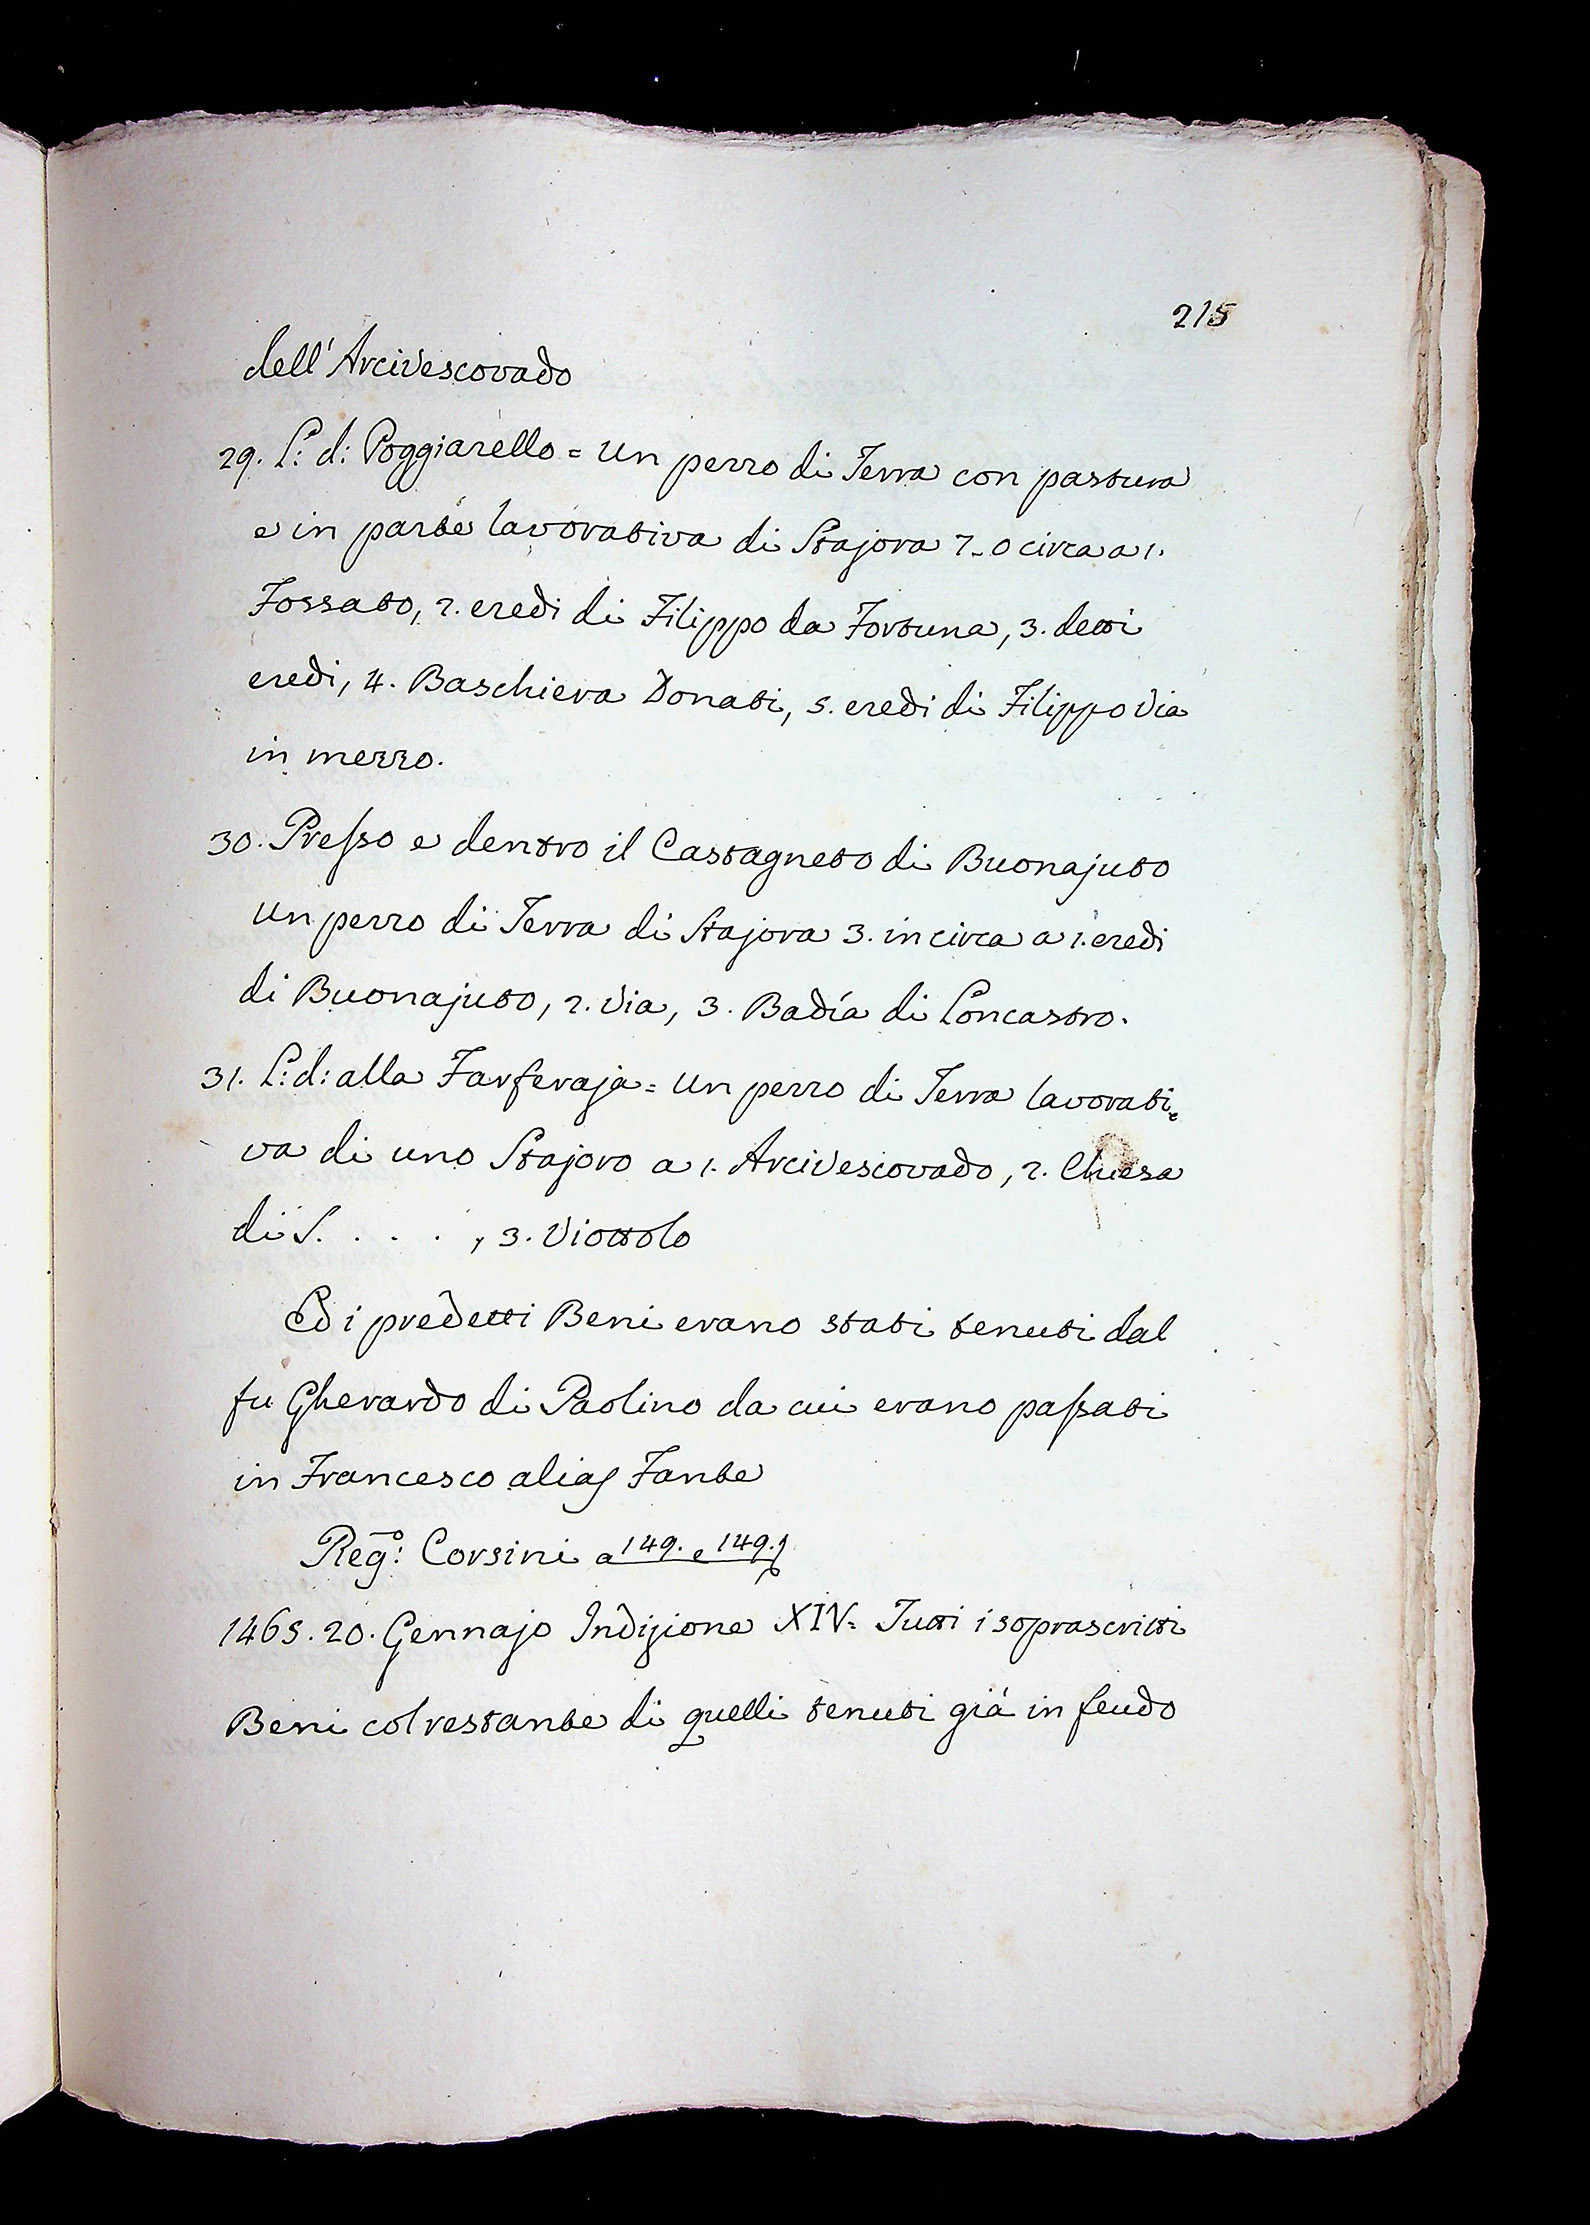 215
dell'Arcivescovado
29. L: d: Poggiarello = un pezzo di Terra con pastura
e in parte lavorativa di Stajora 7_0 circa a 1.
Fossato, 2. eredi di Filippo da Fortuna, 3. detti
eredi, 4. Baschiera Donati, 5. eredi di Filippo Via
in mezzo.
30. Presso e dentro il Castagneto di Buonajuto
un pezzo di Terra di Stajora 3. in circa a 1. eredi
di Buonajuto, 2. Via, 3. Badía di Loncastro.
31. L: d: alla Farferaja = un pezzo di Terra lavorati=
va di uno Stajoro a 1. Arcivescovado, 2. Chiesa
di S. . . . , 3. Viottolo
Ed i predetti Beni erano stati tenuti dal
fu Gherardo di Paolino da cui erano passati
in Francesco alias Fante
Reg.o: Corsini a 149. e 149.
1465. 20. Gennajo Indizione XIV = Tutti i soprascritti
Beni col restante di quelli tenuti giá in feudo